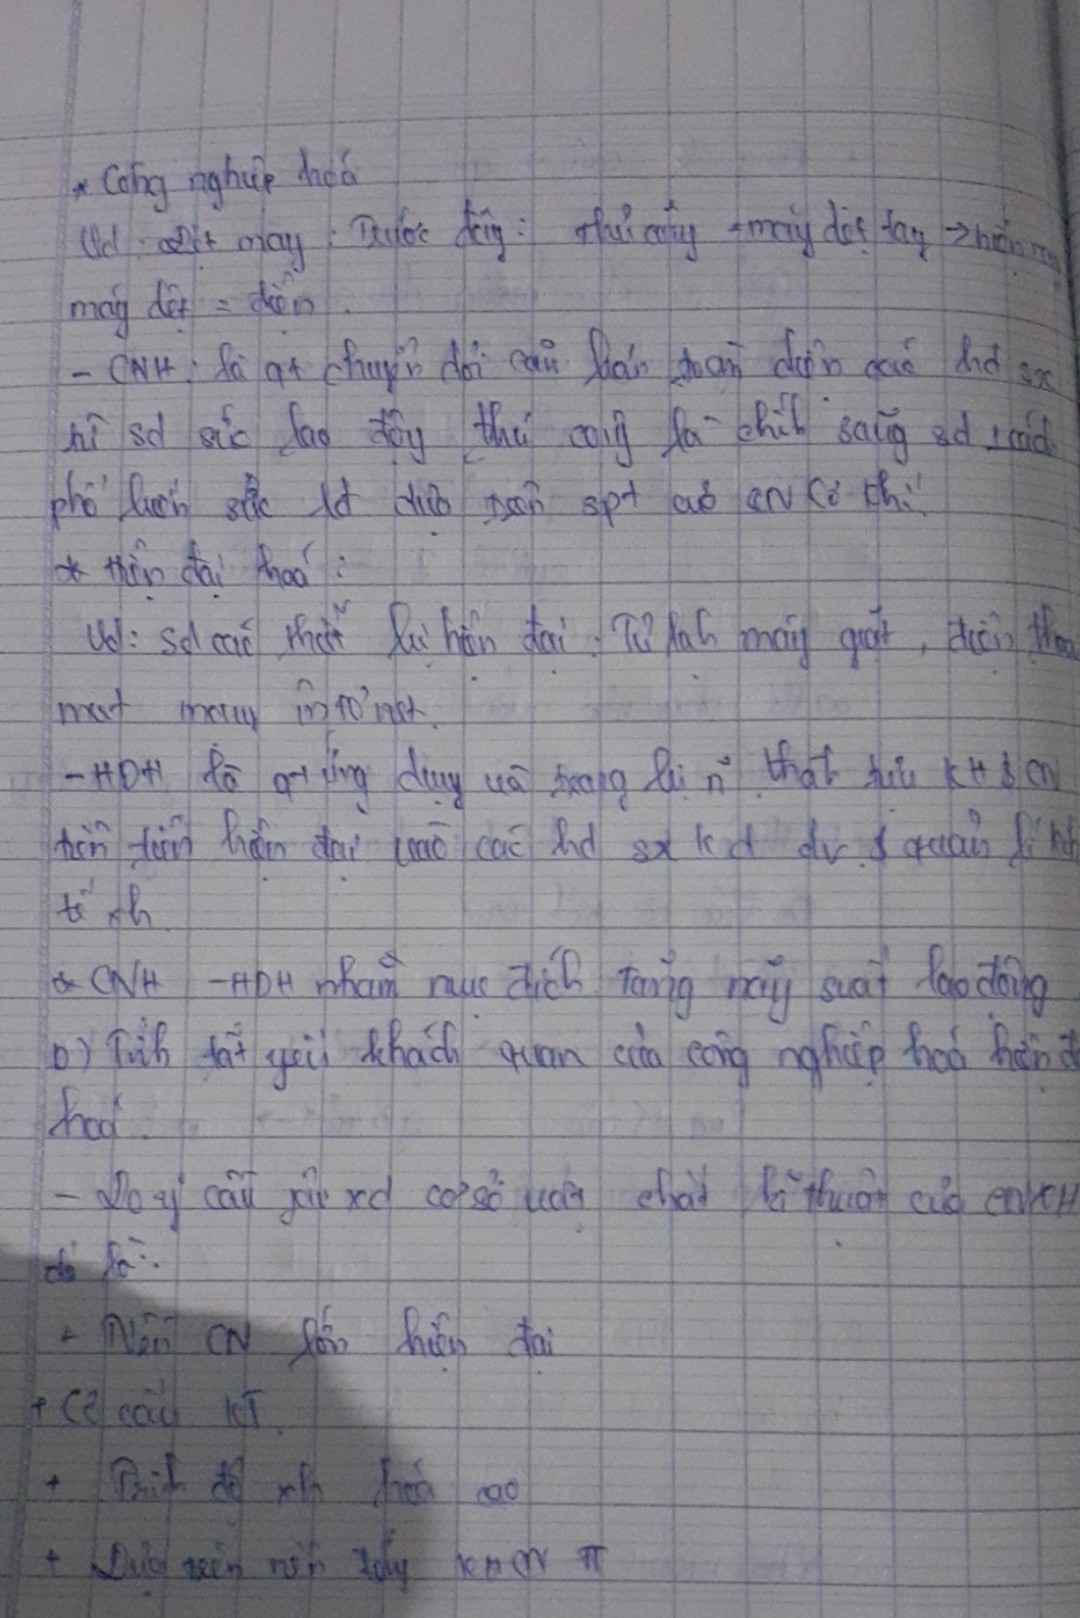 * Công nghiệp hoá
Vd: Dệt may: Trước đây: thủ công + máy dệt tay → hiện nay
máy dệt = điện.
- CNH: là qt chuyển đổi căn bản toàn diện các hđ sx
từ sd sức lao động thủ công là chính sang sd 1 cách
phổ biến sức lđ dựa trên spt của CN cơ khí.
* Hiện đại hoá:
Vd: sd các thiết bị hiện đại: Tủ lạnh máy giặt, điện thoại
máy internet.
- HDH là qt ứng dụng và trang bị n~ thành tựu KH & CN
tiên tiến hiện đại vào các hđ sx kd dv & quản lí kinh
tế xh
* CNH - HDH nhằm mục đích tăng năng suất lao động
b) Tính tất yếu khách quan của công nghiệp hoá hiện đ
hoá.
- Do y/c cầu xd cơ sở vật chất kĩ thuật của CNXH
đó là:
+ Nền CN lớn hiện đại
+ Cơ cấu KT
+ Trình độ xh hoá cao
+ Dựa trên nền tảng KH CN TT